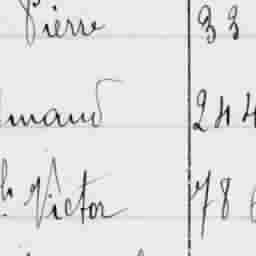 Pierre 33
mand 244
h. Victor 78